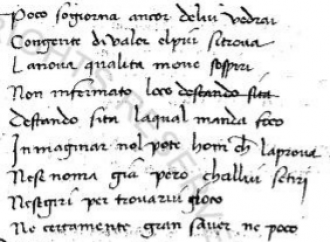 Poco sogiorna ancor deluu vedrai
Congente di valor elpiu sitrova
La nova qualita move sospiri
Non infermato loco destando sita
Destando sita laqual manda foco
Inmaginar nol pote hom ch laprova
Nesi nova gia pero challui sitiri
Nesigiri per trovarui gioco
Ne certamente gran saver ne poco